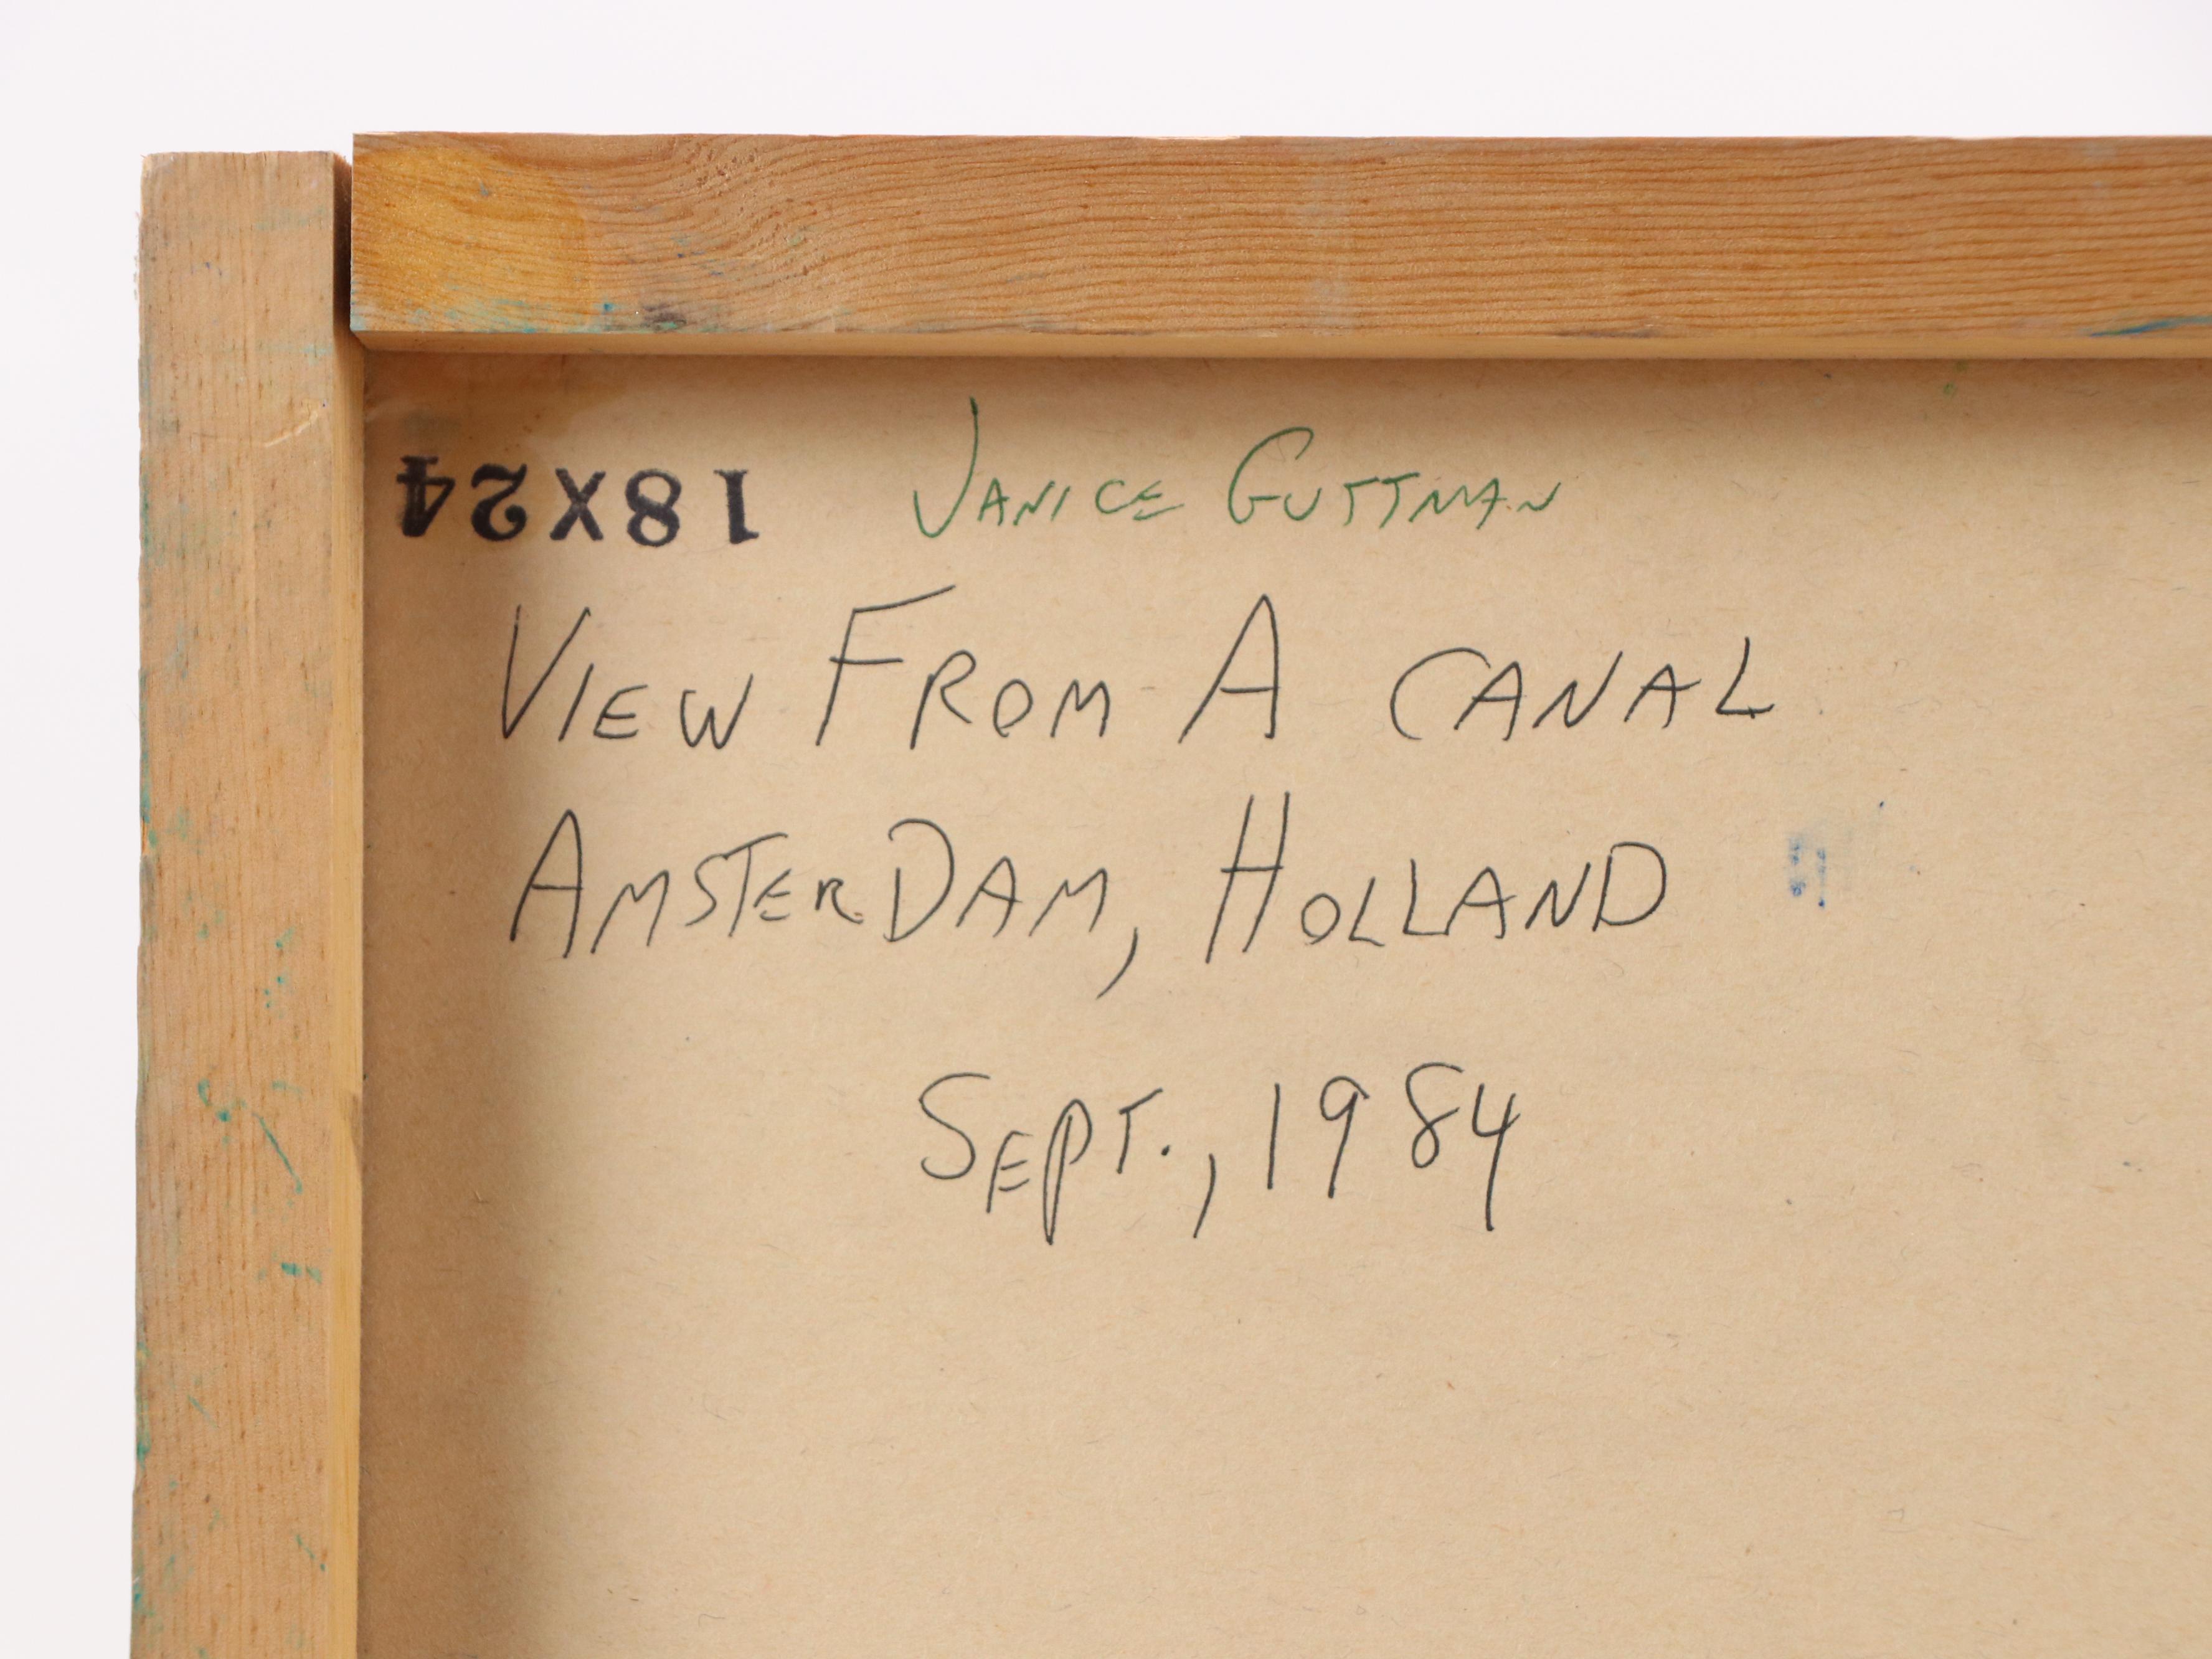 18X24
JANICE GUTTMAN
VIEW FROM A CANAL
AMSTERDAM, HOLLAND
SEPT., 1984